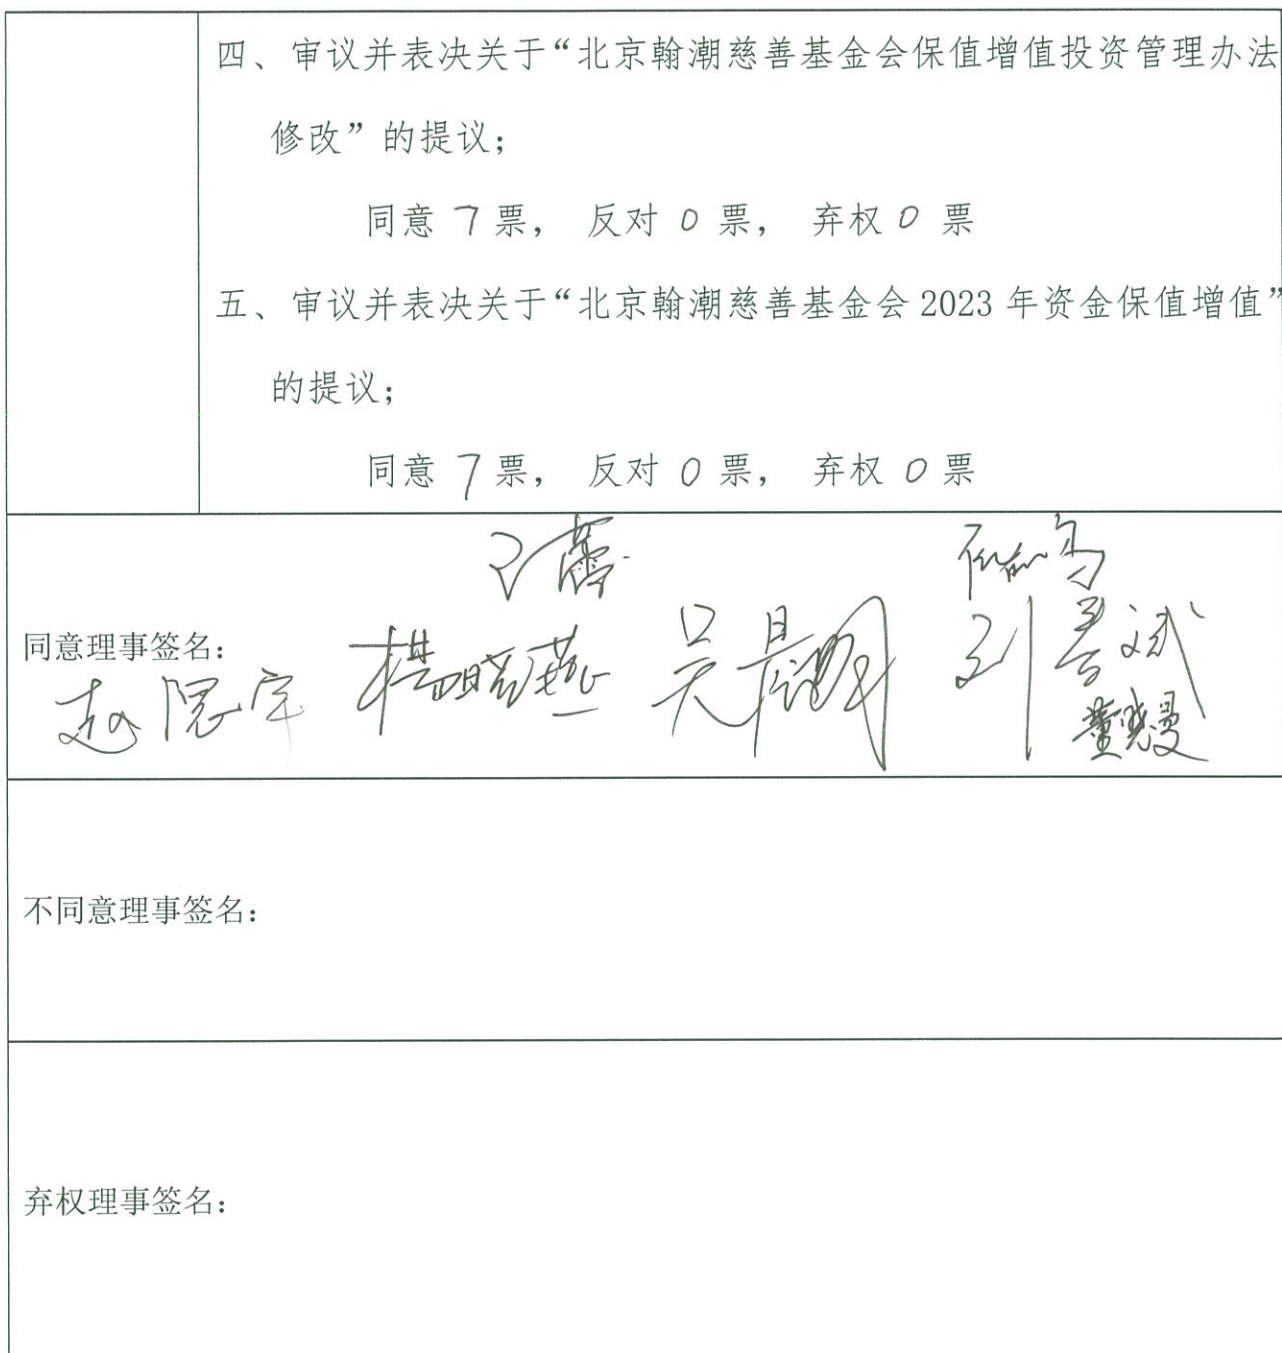 四、审议并表决关于“北京翰潮慈善基金会保值增值投资管理办法
修改”的提议；
同意 7 票， 反对 0 票， 弃权 0 票
五、审议并表决关于“北京翰潮慈善基金会 2023 年资金保值增值”
的提议；
同意 7 票， 反对 0 票， 弃权 0 票
同意理事签名：
楊晓燕 吴晨明
董晓曼
不同意理事签名：
弃权理事签名：